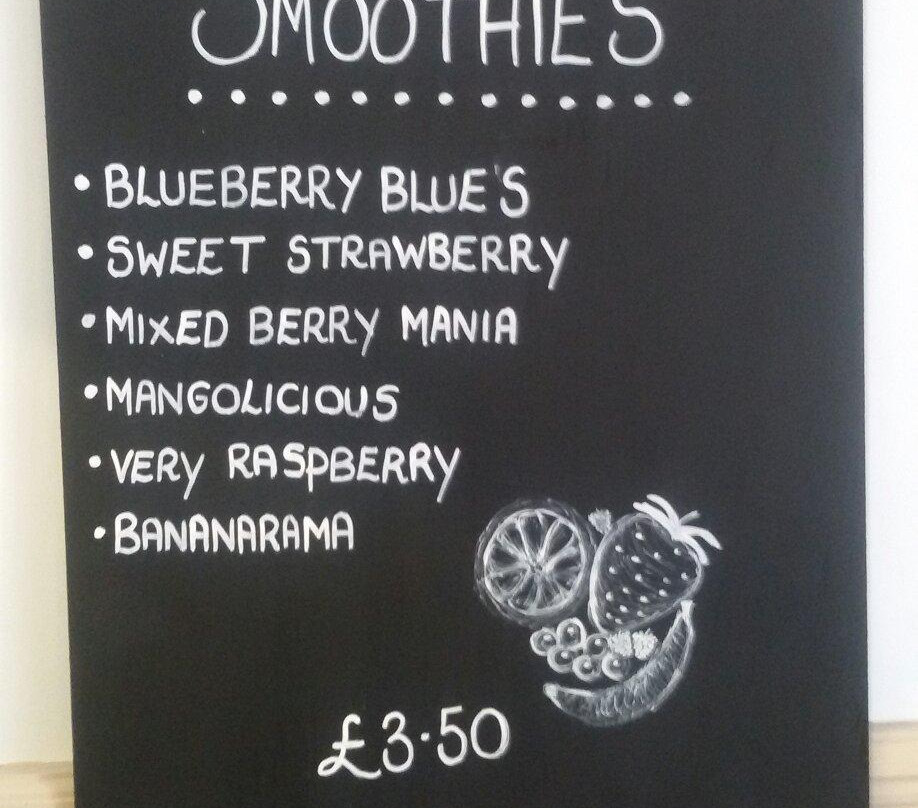 SMOOTHIES
• BLUEBERRY BLUE'S
• SWEET STRAWBERRY
• MIXED BERRY MANIA
• MANGOLICIOUS
• VERY RASPBERRY
• BANANARAMA
£3.50